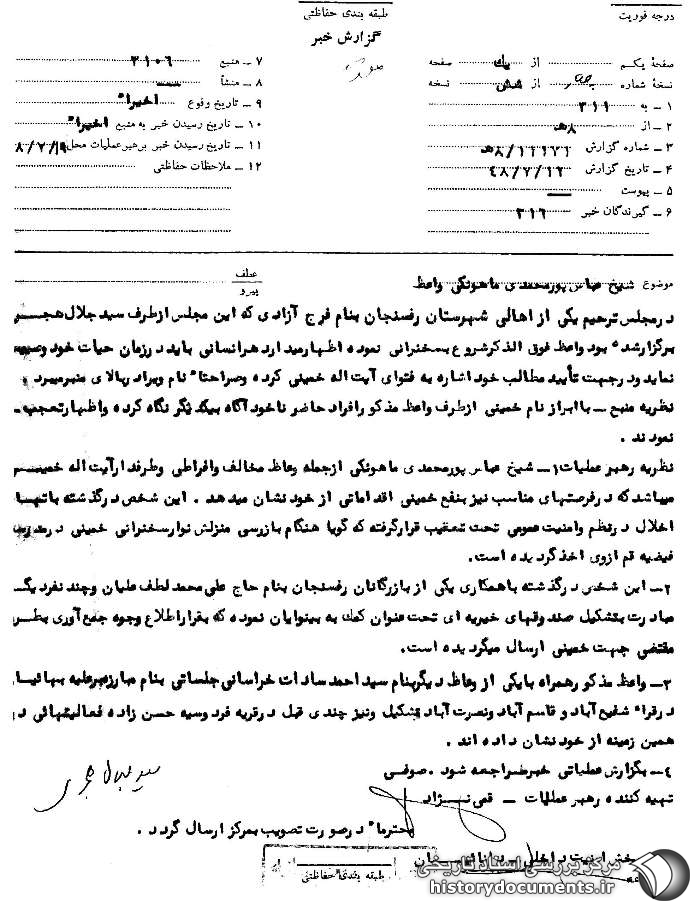 درجه فوریت
طبقه بندی حفاظتی
گزارش خبر
صفحهٔ یکم از یک صفحه
نسخهٔ شماره از شش نسخه
۱ ـ به ۳۱۱
۲ ـ از ۸هـ
۳ ـ شماره گزارش
۴ ـ تاریخ گزارش ۴۸/۷/۱۲
۵ ـ پیوست
۶ ـ گیرندگان خبر ۳۱۶
۷ ـ منبع ۳۱۰۶
۸ ـ منشأ
۹ ـ تاریخ وقوع اخیراً
۱۰ ـ تاریخ رسیدن خبر به منبع اخیراً
۱۱ ـ تاریخ رسیدن خبر برهبر عملیات محل
۱۲ ـ ملاحظات حفاظتی
موضوع شیخ عباس پورمحمدی ماهونکی واعظ
عطف
پیرو
در مجلس ترحیم یکی از اهالی شهرستان رفسنجان بنام فرج آزادی که این مجلس از طرف سید جلال هجری
برگزار شده بود واعظ فوق الذکر شروع بسخنرانی نموده اظهار میدارد هر انسانی باید در زمان حیات خود وصیت
نماید و در جهت تأیید مطالب خود اشاره به فتوای آیت اله خمینی کرده و صراحتاً نام ویرا در بالای منبر میبرد
نظریه منبع ـ با ابراز نام خمینی از طرف واعظ مذکور افراد حاضر ناخودآگاه بیکدیگر نگاه کرده و اظهار تعجب
نمودند .
نظریه رهبر عملیات ۱ـ شیخ عباس پورمحمدی ماهونکی از جمله وعاظ مخالف و افراطی و طرفدار آیت اله خمینی
میباشد که در فرصتهای مناسب نیز بنفع خمینی اقداماتی از خود نشان میدهد . این شخص در گذشته باتهام
اخلال در نظم و امنیت عمومی تحت تعقیب قرار گرفته که گویا هنگام بازرسی منزلش نوار سخنرانی خمینی در مدرسه
فیضیه قم از وی اخذ گردیده است.
۲ـ این شخص در گذشته با همکاری یکی از بازرگانان رفسنجان بنام حاج علی محمد لطف علیان و چند نفر دیگر
مبادرت بتشکیل صندوقهای خیریه ای تحت عنوان کمک به بینوایان نموده که بقرار اطلاع وجوه جمع آوری بطرق
مقتضی جهت خمینی ارسال میگردیده است.
۳ـ واعظ مذکور همراه با یکی از وعاظ دیگر بنام سید احمد سادات خراسانی جلساتی بنام مبارزه بر علیه بهائیان
در قراء شفیع آباد و قاسم آباد و نصرت آباد تشکیل و نیز چندی قبل در قریه فردوسیه حسن زاده فعالیتهائی در
همین زمینه از خود نشان داده اند .
۴ـ بگزارش عملیاتی خبر مراجعه شود . صوفی
تهیه کننده رهبر عملیات ـ قمی نژاد
سید جلال هجری
محترماً در صورت تصویب بمرکز ارسال گردد .
بخش امنیت داخلی
طبقه بندی حفاظتی
مرکز بررسی اسناد تاریخی
historydocuments.ir